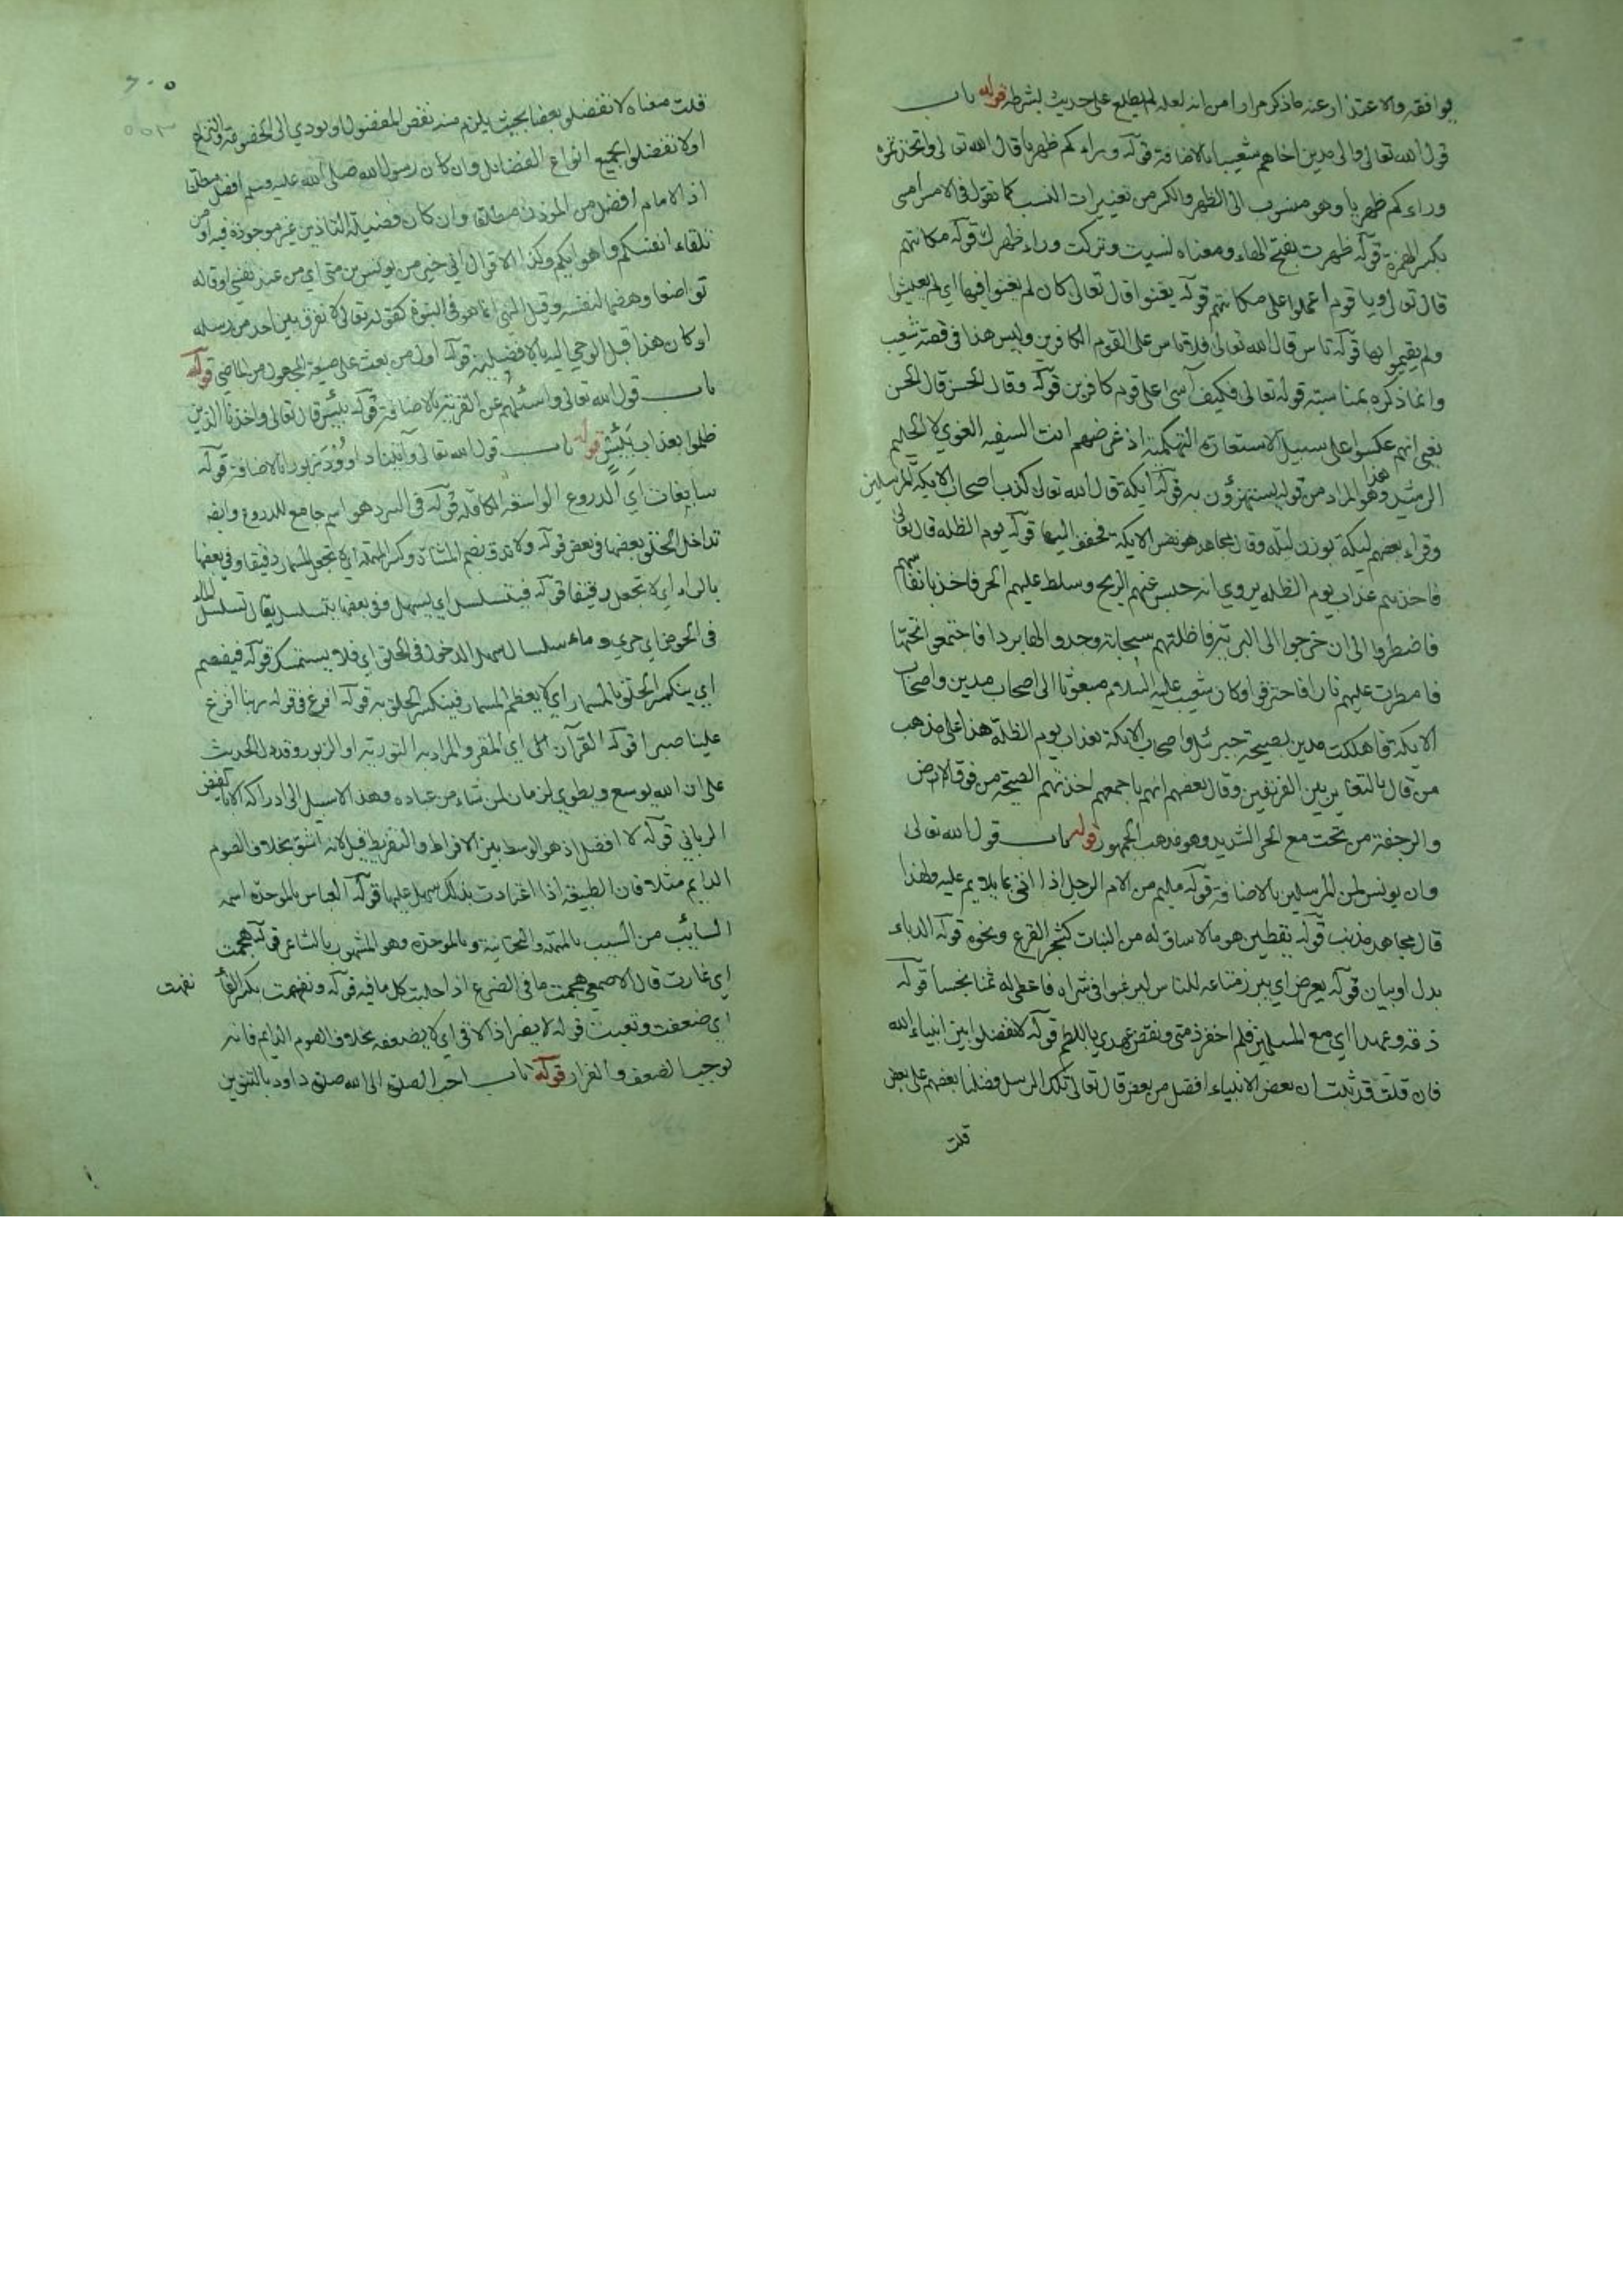 يوافقه والاعتذار عنه ما ذكر مرارا من انه لعله لم يطلع على حديث بشرطه قوله باب
قول الله تعالى والى مدين اخاهم شعيبا بالاضافة قوله وراءكم ظهريا قال الله تعالى واتخذتموه
وراءكم ظهريا وهو منسوب الى الظهر والكسر من تغييرات النسب كما تقول في الامس امسي
بكسر الهمزة قوله ظهرت بفتح الهاء ومعناه نسيت وتركت وراء ظهرك قوله مكانتهم
قال تعالى ويا قوم اعملوا على مكانتكم قوله يغنوا قال تعالى كان لم يغنوا فيها اي لم يعيشوا
ولم يقيموا بها قوله تاس قال الله تعالى فلا تاس على القوم الكافرين وليس هذا في قصة شعيب
وانما ذكره بمناسبة قوله تعالى فكيف آسى على قوم كافرين قوله وقال الحسن قال الحسن
يعني انهم عكسوا على سبيل الاستعارة التهكمية اذ غرضهم انت السفيه الغوي لا الحليم
الرشيد وهذا هو المراد من قوله يستهزؤن به قوله ايكة قال الله تعالى كذب اصحاب الايكة المرسلين
وقراء بعضهم ليكة بوزن ليلة وقال مجاهد هو نفس الايكة فخفف اليها قوله يوم الظلة قال تعالى
فاخذهم عذاب يوم الظلة يروي انه حبس عنهم الريح وسلط عليهم الحر فاخذ بانفاسهم
فاضطروا الى ان خرجوا الى البرية فاظلتهم سحابة وجدوا لها بردا فاجتمعوا تحتها
فامطرت عليهم نارا فاحترقوا وكان شعيب عليه السلام مبعوثا الى اصحاب مدين واصحاب
الايكة فاهلكت مدين بصيحة جبرئل واصحاب الايكة بعذاب يوم الظلة هذا على مذهب
من قال بالتغاير بين الفريقين وقال بعضهم انهم باجمعهم اخذتهم الصيحة من فوق الارض
والرجفة من تحت مع الحر الشديد وهو مذهب الجمهور قوله باب قول الله تعالى
وان يونس لمن المرسلين بالاضافة قوله مليم من الام الرجل اذا اتى بما يلام عليه ولهذا
قال مجاهد مذنب قوله يقطين هو ما لا ساق له من النبات كشجر القرع ونحوه قوله الدباء
بدل او بيان قوله يعرض اي يبرز متاعه للناس ليرغبوا في شراه فاعطي له ثمنا بخسا قوله
ذمة وعهدا اي مع المسلمين فلم اخفر ذمتي ونقض عهدي باللطم قوله لا تفضلوا بين انبياء الله
فان قلت قد ثبت ان بعض الانبياء افضل من بعض قال تعالى تلك الرسل فضلنا بعضهم على بعض
قلت
قلت معناه لا تفضلوا بعضا بحيث يلزم منه نقص المفضول او يودي الى الخصومة والنزاع
او لا تفضلوا بجميع انواع الفضائل وان كان رسول الله صلى الله عليه وسلم افضل مطلقا
اذ الامام افضل من الموذن مطلقا وان كان فضيلة التاذين غير موجودة فيه او من
تلقاء انفسكم واهوائكم وكذا لا اقول اني خير من يونس بن متى اي من عند نفسي او قاله
تواضعا وهضما لنفسه وقيل النهي انما هو في النبوة كقوله تعالى لا نفرق بين احد من رسله
او كان هذا قبل الوحي اليه بالافضلية قوله اول من بعث على صيغة المجهول من الماضي قوله
باب قول الله تعالى واسئلهم عن القرية بالاضافة قوله بئيس قال تعالى واخذنا الذين
ظلموا بعذاب بئيس قوله باب قول الله تعالى وآتينا داوود زبورا بالاضافة قوله
سابغات اي الدروع الواسعة الكاملة قوله في السرد هو اسم جامع للدروع وايضا
تداخل الحلق بعضها في بعض قوله ولا تدق بضم المثناة وكسر المهملة اي لا تجعل المسمار دقيقا وفي بعضها
بالراء اي لا تجعل رقيقا قوله فيتسلسل اي يسهل وفي بعضها يتسلسل يقال تسلسل الماء
في الحوض اي جري وماء سلسال سهل الدخول في الحلق اي فلا يستمسك قوله فيفصم
اي ينكسر الحلق بالمسمار اي لا يعظم المسمار فينكسر الحلق به قوله افرغ في قوله ربنا افرغ
علينا صبرا قوله القرآن اي المقرو والمراد به التورية او الزبور وقد دل الحديث
على ان الله يوسع ويطوي الزمان لمن شاء من عباده وهذا لا سبيل الى ادراكه الا بالفيض
الرباني قوله لا افضل اذ هو الوسط بين الافراط والتفريط قيل لانه اشق بخلاف الصوم
الدايم مثلا فان الطبيعة اذا اعتادت بذلك سهل عليها قوله العباس بالموحدة اسمه
السائب من السيب بالمهملة والتحتانية وبالموحدة وهو المشهور بالشاعر قوله هجمت
اي غارت قال الاصمعي هجمت ما في الضرع اذا حلبت كل ما فيه قوله ونفهت بكسر الفا
نفهت
اي ضعفت وتعبت قوله لا يفر اذا لاقى اي لا يضعفه بخلاف الصوم الدايم فانه
يوجب الضعف والفرار قوله باب احب الصلوة الى الله صلوة داود بالتنوين